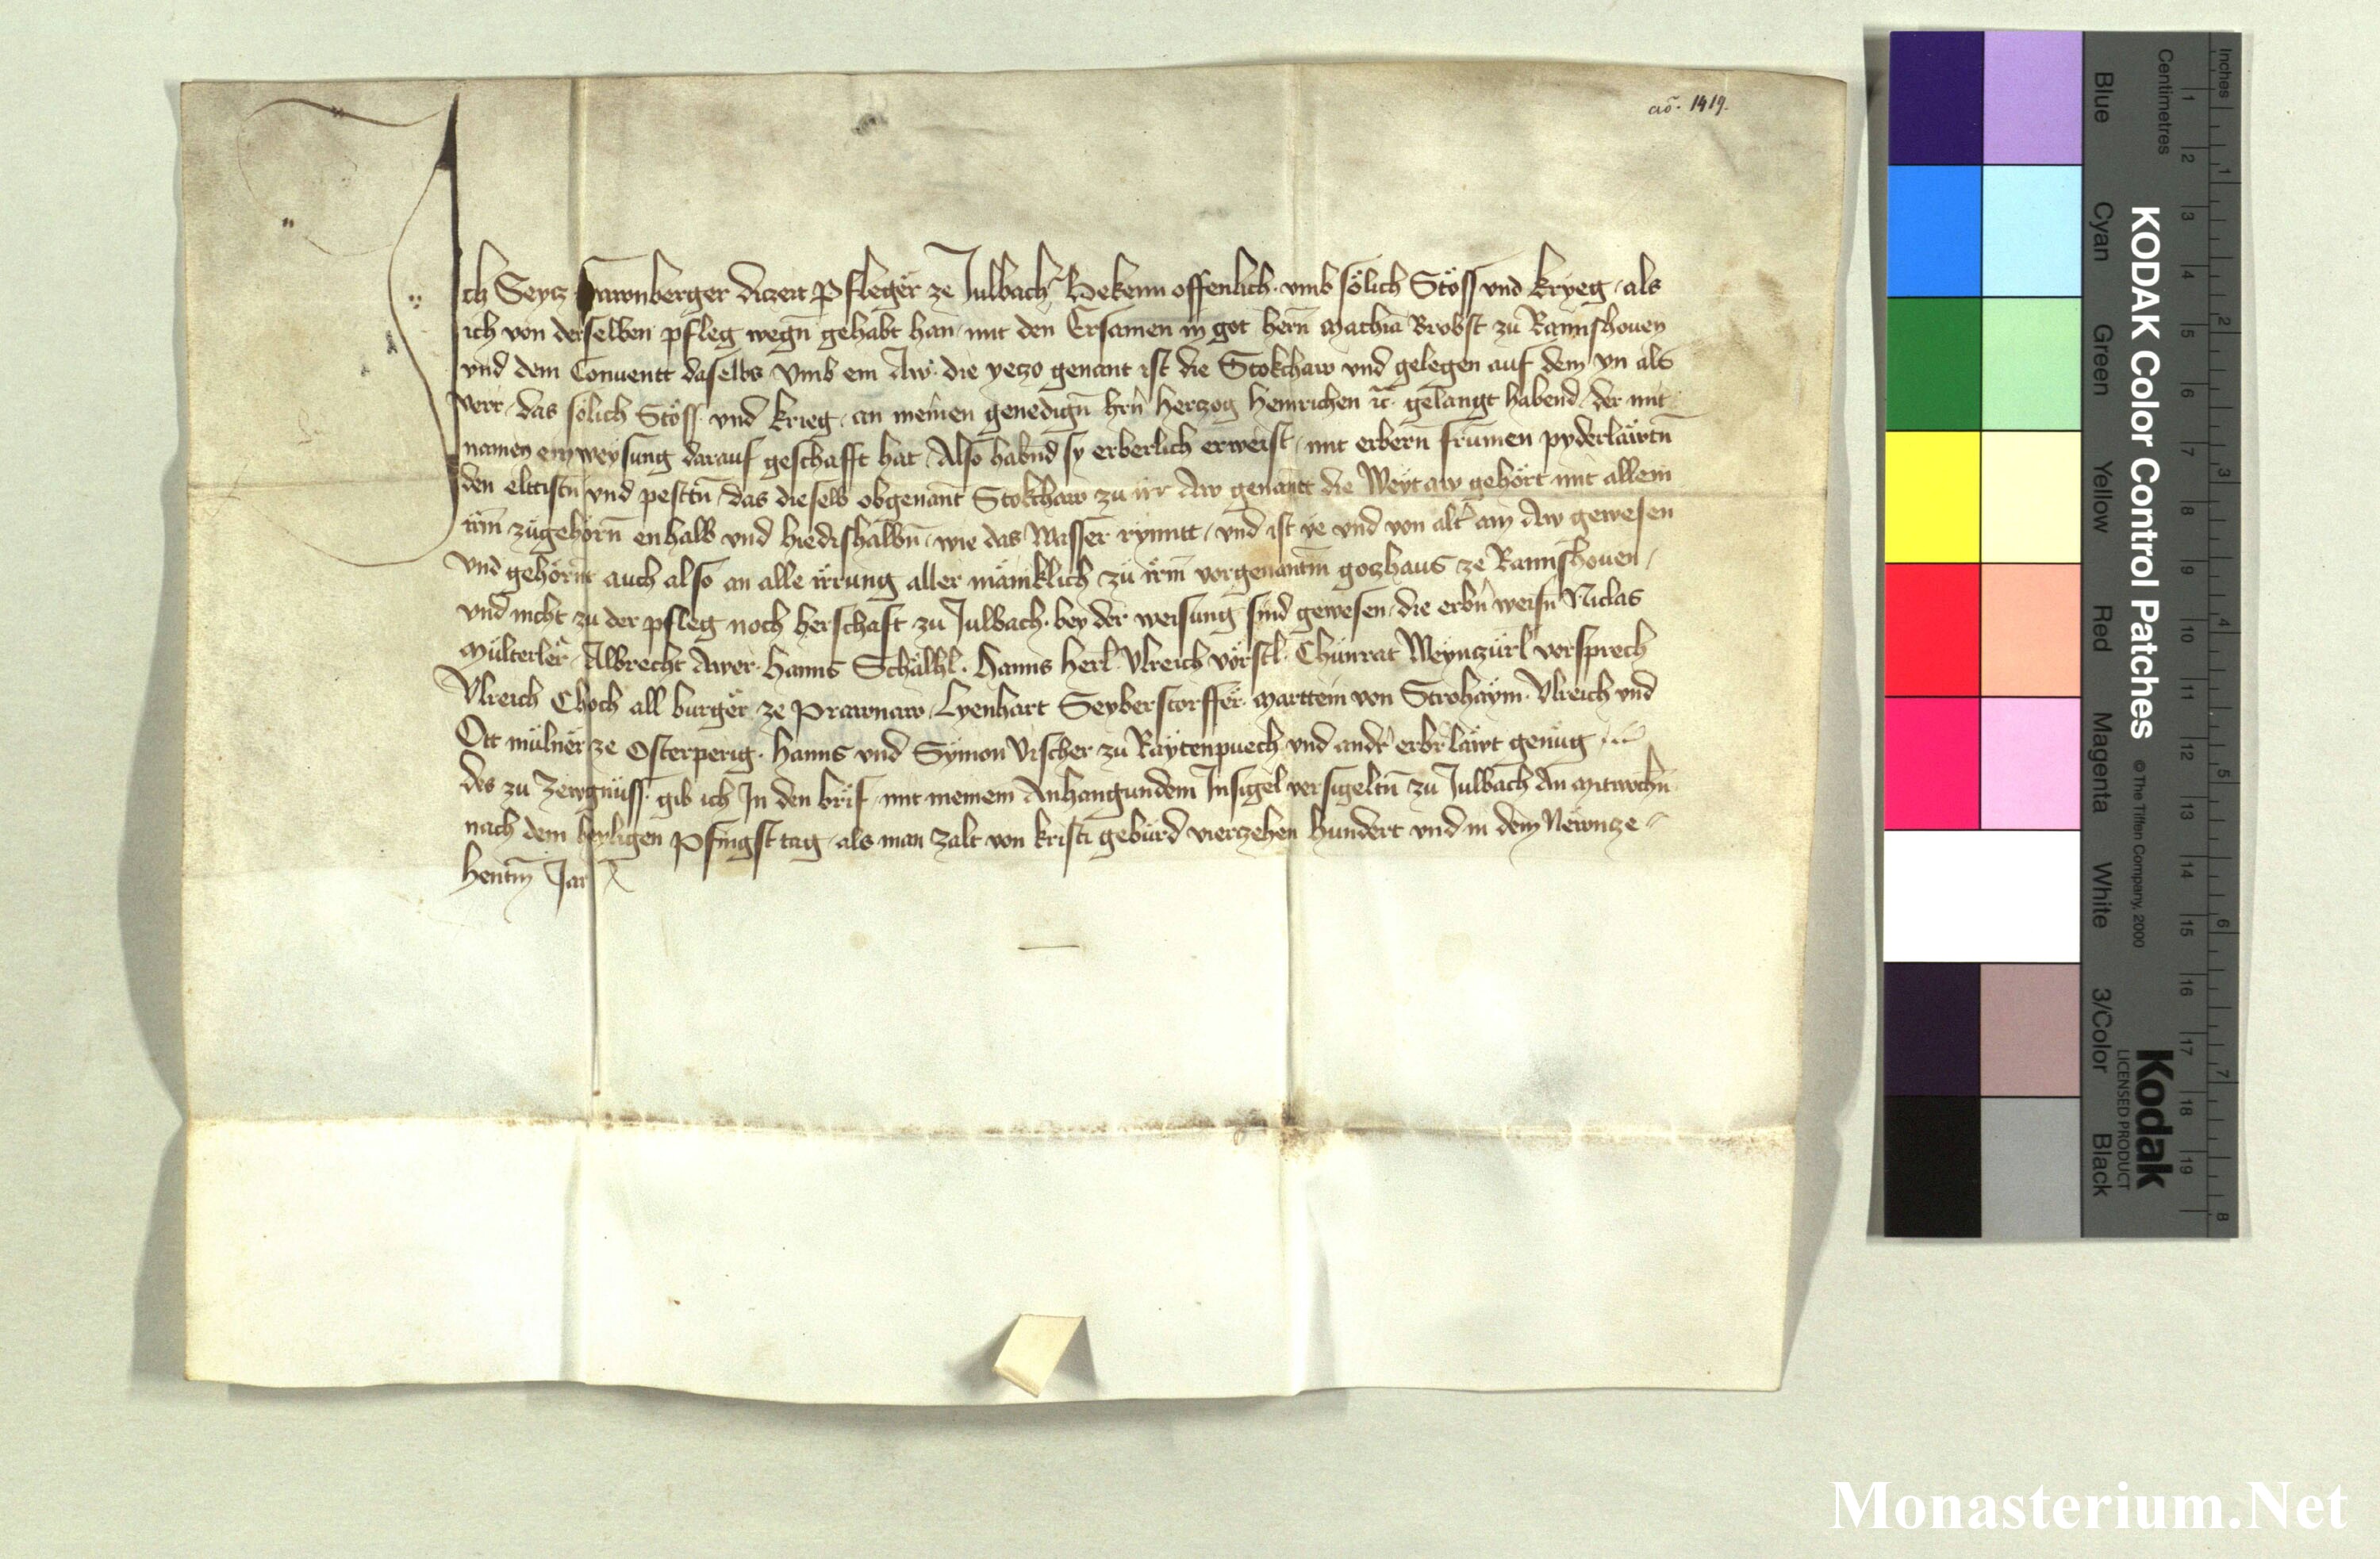 aō. 1419.
Ich Seycz Tawnberger diczeit Pfleger ze Julbach Bekenn offenlich vmb sölich Stöss vnd kryeg als
ich von derselben pfleg wegn̄ gehabt han mit den Ersamen in got hern̄ Mathia Brobst zu Rannshouen
vnd dem Conuentt daselbs vmb ein Aw die yeczo genant ist die Stokchaw vnd gelegen auf dem yn als
verr das sölich Stöss vnd krieg an meinen genedign̄ hrn̄ herczog Heinrichen ꝛc̄ gelangt habend der mit
namen ein weysung darauf geschafft hat Also habnd sy erberlich erweist mit erbern frumen pyderläwtn̄
den elttistn̄ vnd pesttn̄ das dieselb obgenant Stokchaw zu irr Aw genantt die Weytaw gehört mit allem
irm̄ zugehörn̄ enhalb vnd hiedishalbn̄ wie das Wasser rynntt vnd ist ye vnd von alt̄ ain Aw gewesen
vnd gehörnt auch also an alle irrung aller mäniklich zu irm̄ vorgenantm̄ goczhaus ze Rannshouen
vnd nicht zu der pfleg noch herschaft zu Julbach bey der weisung sind gewesen die erbn̄ weisn̄ Niclas
Mülterler Albrecht Awer Hanns Schälhl Hanns Herl Vlreich vörstl Chunrat Weynczürl vorsprech
Vlreich Choch all burger ze Prawnaw Lyenhart Seyberstorffer Marttein von Strohaym Vlreich vnd
Ott mülner ze Osterperig Hanns vnd Symon Vischer zu Raytenpuech vnd andr̄ erbr̄ läwt genug
des zu zewgnüss gib ich In den brif mit meinem Anhangundem Insigel versigeltn̄ zu Julbach An Mitwochn̄
nach dem heyligen Pfingsttag als man zalt von kristi geburd vierczehen hundert vnd in dem Newncze
hentm̄ Jar
KODAK Color Control Patches
© The Tiffen Company, 2000
Kodak
LICENSED PRODUCT
Inches
1 2 3 4 5 6 7 8
Centimetres
1 2 3 4 5 6 7 8 9 10 11 12 13 14 15 16 17 18 19
Blue
Cyan
Green
Yellow
Red
Magenta
White
3/Color
Black
Monasterium.Net